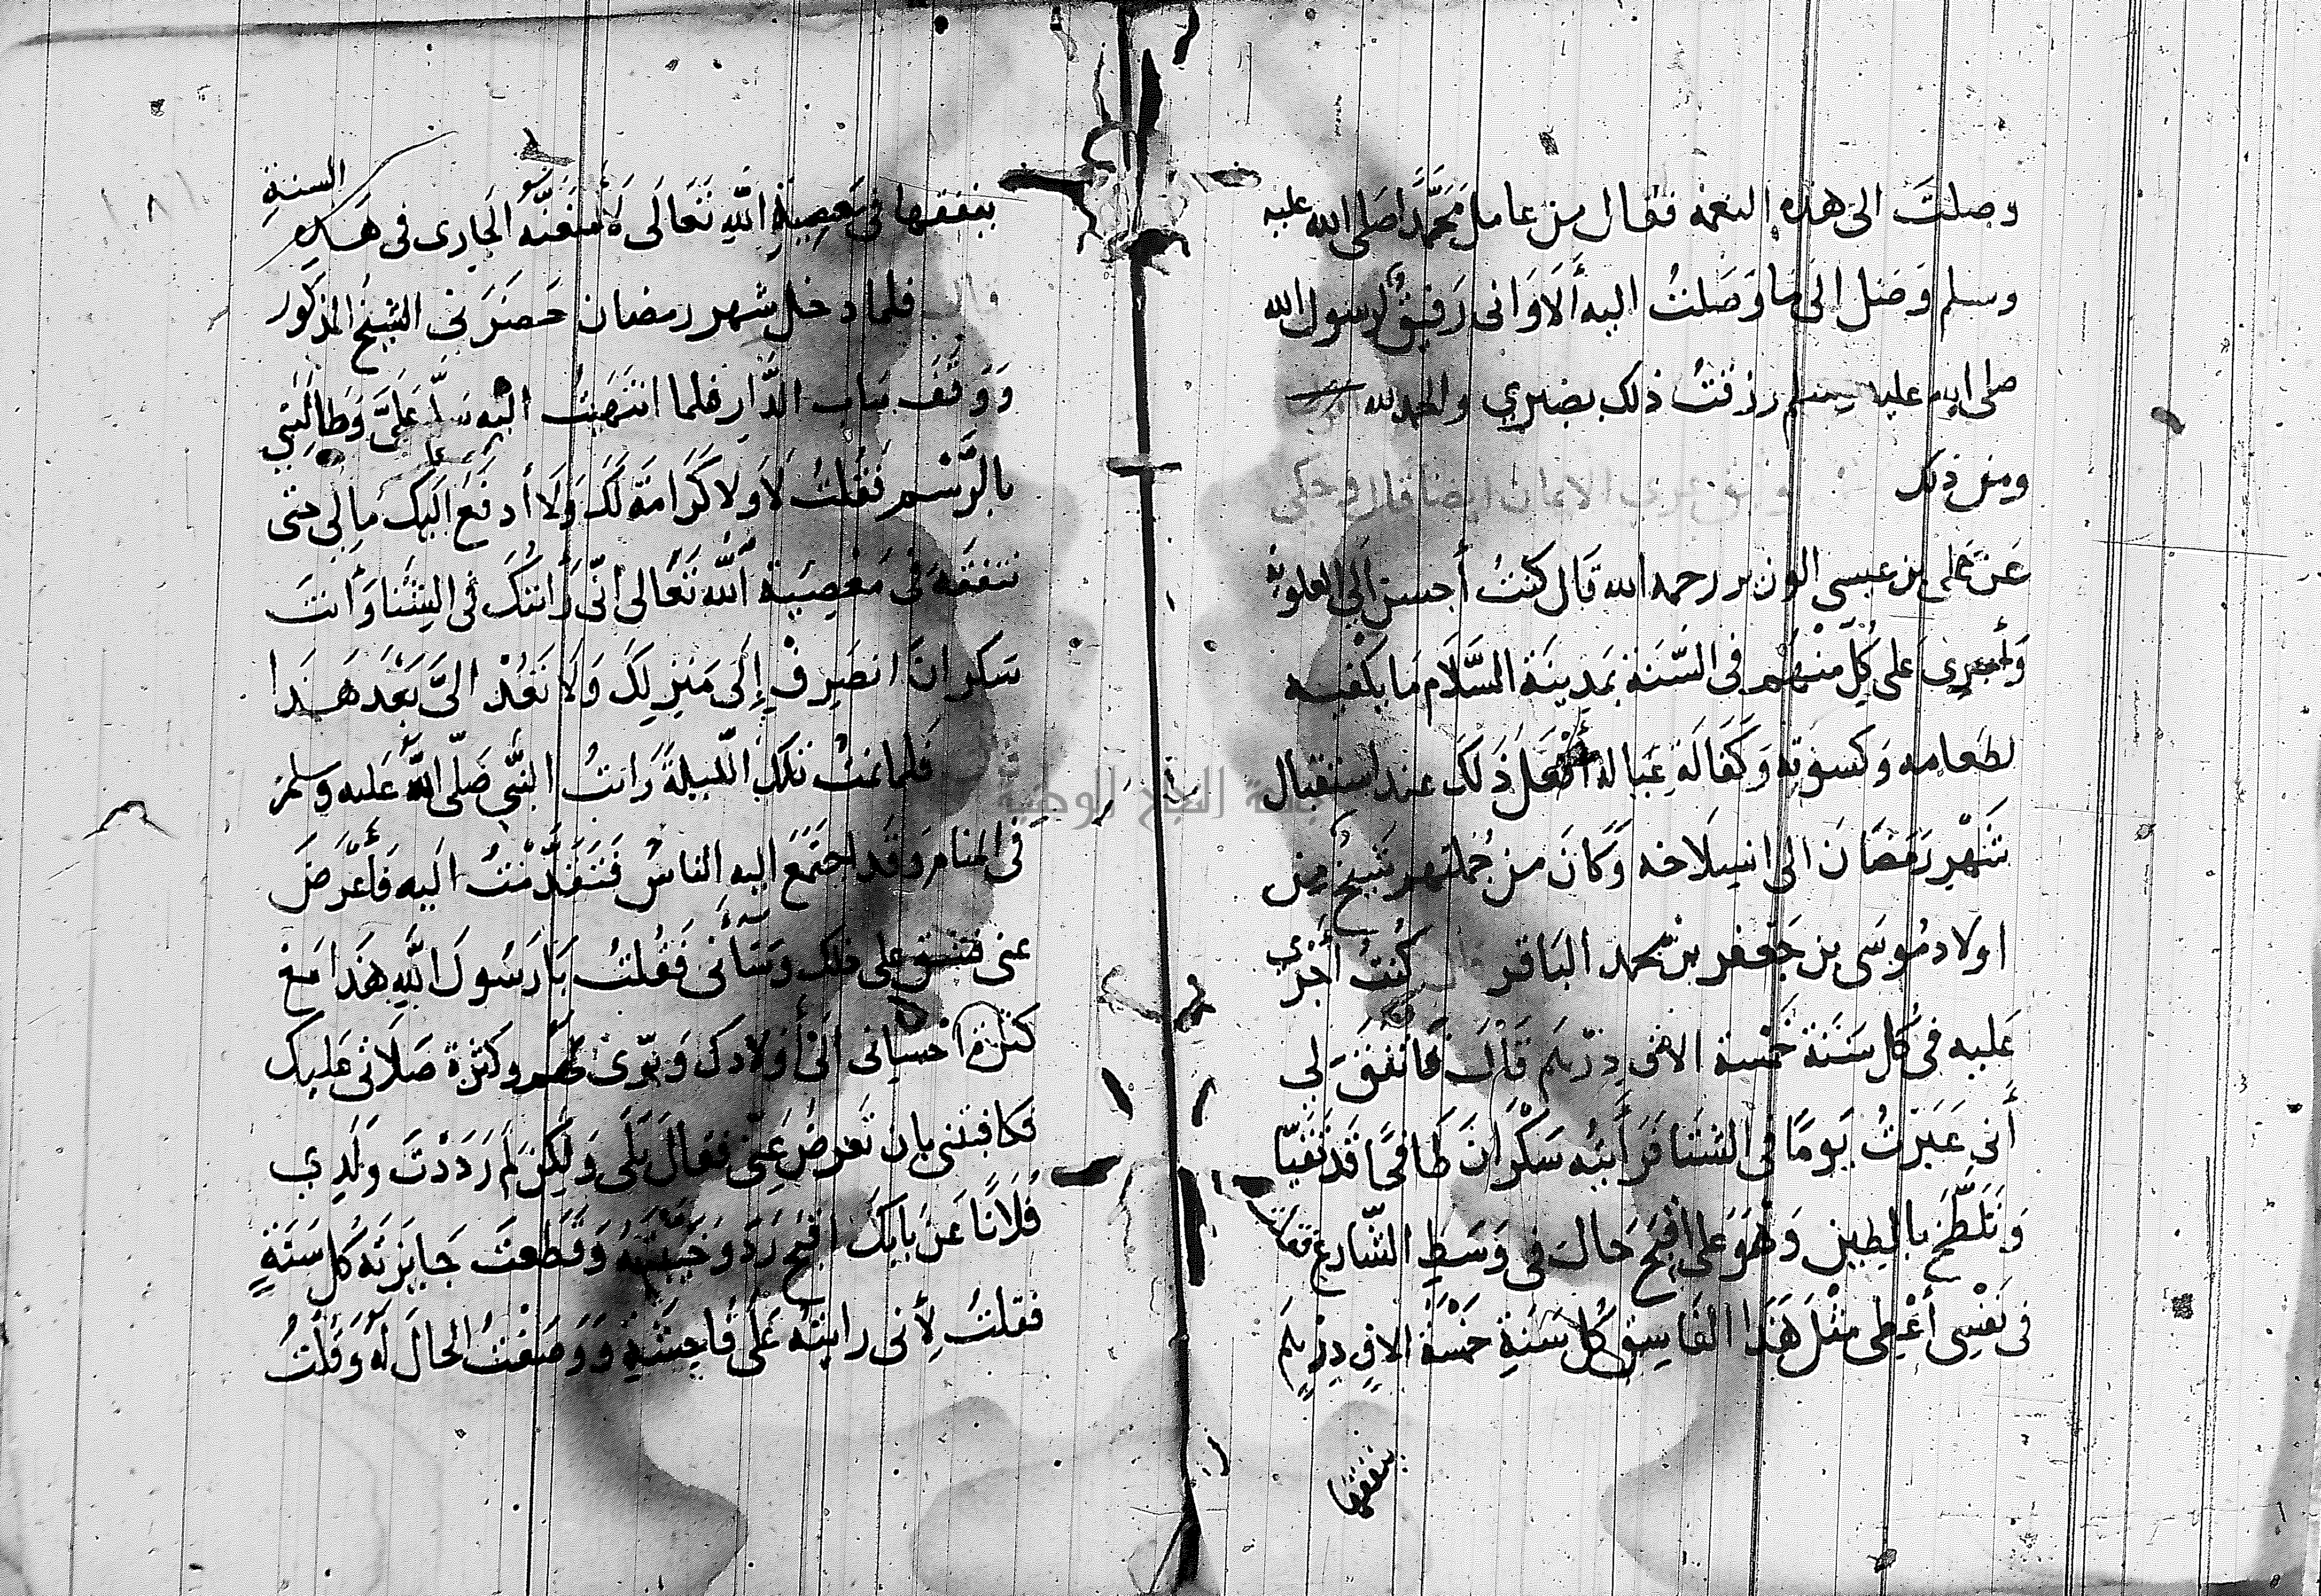 وصلتَ الى هذه النعمه فقال من عامل محمَّدًا صَلى الله عليه
وسلم وَصَل الىَ مَا وَصَلتُ اليه أَلَا وَانى رَفيقٌ لرسول الله
صلى الله عليه وسلم رزقتُ ذلك بصبري والحمد لله
ومن ذلك الاعيان ايضا قال وحكى
عَن عَلى بن عيسى الوزير رحمه الله قَال كنتُ أحسن الى العلويّة
وَأُجرى عَلى كُل منهُم فى السّنَة بمَدينَة السَّلَام مَا يكفيه
لطعامه وَكسوَتِه وَكَفالَة عِيَاله أفعَل ذَلكَ عند استقبال
شَهْرِ رَمَضَانَ الى انسِلَاخه وَكَانَ من جُملتهم شَيخٌ من
اولاد مُوسَى بن جَعفر بن محمد البَاقر كُنتُ أجْرى
عَليه فى كل سَنَة خَمسة الاف دِرهَم قَالَ فَاتفقَ لى
أنى عَبَرتُ يَومًا فى الشتَا فَرَأيتُه سَكْرَانَ طَافحًا قَد تَقيّا
وَتَلَطّخَ بالطِين وَهُوَ عَلى اقبَح حَال فى وَسَطِ الشّارع فقلت
فى نَفْسِى أُعْطِى مثْلَ هَذَا الفَاسِق كُل سَنَةٍ خَمْسَة الافِ دِرْهَم
ينفقها
السنة
ينفقها فى مَعصِيَةِ اللهِ تَعَالَى لَأمنعَنّه الجَارى فى هَذِهِ
قال فلما دخل شهر رمضان حَضَرَنى الشيخُ المذكور
وَوَقَفَ بباب الدَّار فلما انتَهَيتُ اليْه سَلّم عَلَىَّ وَطَالَبَنِي
بالرَّسْم فَقُلتُ لَا وَلا كَرَامَة لَكَ وَلَا أدفَع اليكَ مَالِى حتى
تنفقَهُ فى مَعْصِيَة الله تَعَالى انّى رَأيتكَ فى الشتَا وَأنتَ
سَكرانَ انصَرِفْ إِلَى مَنزِلكَ وَلَا تَعُدْ الىَّ بَعْدَ هَذا
فلما نمتُ تلكَ اللّيلَة رَايتُ النبّى صَلّى اللَّه عَليه وسلم
فى المنام وَقد اجتَمَعَ اليه الناسُ فَتَقَدَّمْتُ اليه فَأَعرَضَ
عنى فشق على ذلك وَسَآنى فَقُلتُ يَا رَسُولَ اللهِ هَذَا مَع
كثرة احسانى الىَ أولَادكَ وَبرّى لهم وكثرة صَلَاتى عَليك
فكافيتنى بان تعرضَ عَنّى فقالَ بَلَى وَلَكِن لِمَ رَدَدْتَ وَلَدِي
فُلَانًا عَن بَابكَ اقبَح رَد وخَيّبتَهُ وَقَطَعْتَ جَايزته كُل سَنَةٍ
فقلتُ لِأنى رايته عَلى فَاحِشَةٍ وَوَصَفتُ الحالَ لَهُ وَقُلتُ